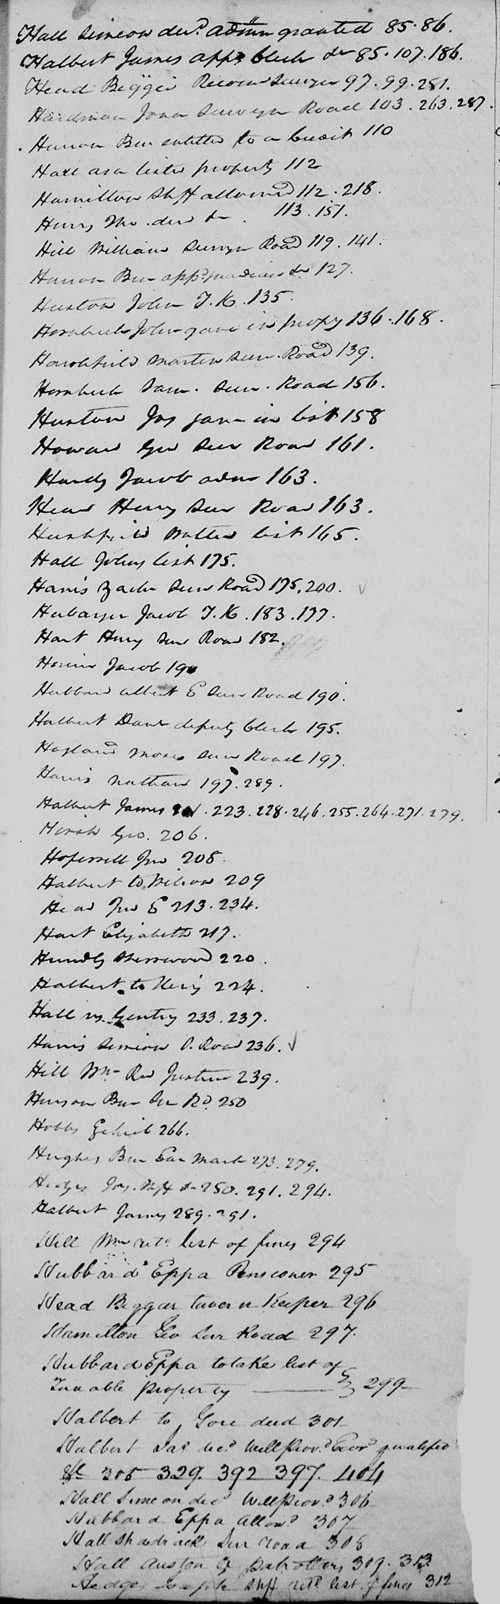 Hall Simeon decd. admn granted 85.86.
Halbert James appd Clerk &c 85.107.186.
Head Bigger Recom Surveyor 97.99.281.
Hardman Jona Surveyor Road 103.263.287.
Ben entitled to a Credit 110
as a listed property 112
Hamilton Shff allowance 112.218.
Henry Wm. 113.151.
Hill William Surveyr Road 119.141.
Ben appd &c 127.
Huston John T.K. 135.
Hornbeck John gave in propy 136.168.
Martin Surv. Road 139.
Hornbeck Sam. Surv. Road 156.
Huston Jos gave in list 158
Howard Geo Surv Road 161.
Hardy Jacob admr 163.
Head Henry Surv Road 163.
list 165.
Hall John list 175.
Harris Zach Surv Road 175,200.
Jacob T.K. 183.177.
Hart Henry Surv Road 182.
Jacob 190
Hubbard Albert E Surv Road 190.
Halbert Danl deputy Clerk 195.
Hagland Moses Surv Road 197.
Harris Nathan 197.289.
Halbert James 223.228.246.255.264.271.279.
Geo. 206.
Jno 208.
Halbert to Wilson 209
Head Jno E 213.234.
Hart Elizabeth 217.
Hundly Sherwood 220.
Halbert to 224.
Hall vs Gentry 233.237.
Harris Simeon O.Road 236.
Hill Wm Justice 239.
Ben Su Rd. 250
Hobbs 266.
Hughes Ben Ear Mark 273.279.
Hedges Jos. Shff &c 280.291.294.
Halbert James 289.291.
Hill Wm retd list of fines 294
Hubbard Eppa Pensioner 295
Head Biggar tavern Keeper 296
Hamilton Geo Sur Road 297.
Hubbard Eppa to take list of
Taxable property 299
Halbert to Gore deed 301
Halbert Jas decd Will Provd. Exor qualified
&c 305 329. 392 397. 404
Hall Simeon decd Will Provd 306
Hubbard Eppa Allowd 307
Hall Shadrack Sur road 308
Hall Austin of patrollers 309. 313
Hedges Joseph Shff retd list of fines 312